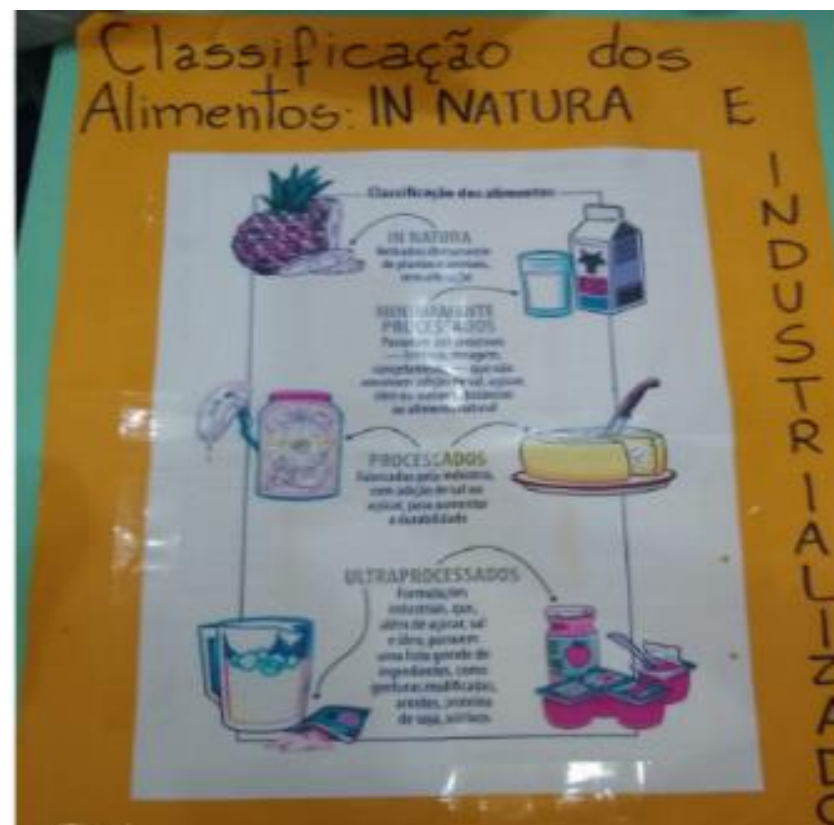 Classificação dos
Alimentos: IN NATURA E
INDUSTRIALIZADO
Classificação dos alimentos
IN NATURA
de plantas e animais,
MINIMAMENTE
PROCESSADOS
que não
envolvem adição de sal, açúcar,
óleo ou
ao alimento natural
PROCESSADOS
Fabricados pela indústria,
com adição de sal ou
açúcar, para aumentar
a durabilidade
ULTRAPROCESSADOS
Formulações
industriais, que,
além de açúcar, sal
e óleo, possuem
uma lista grande de
ingredientes, como
gorduras modificadas,
amidos, proteína
de soja, aditivos